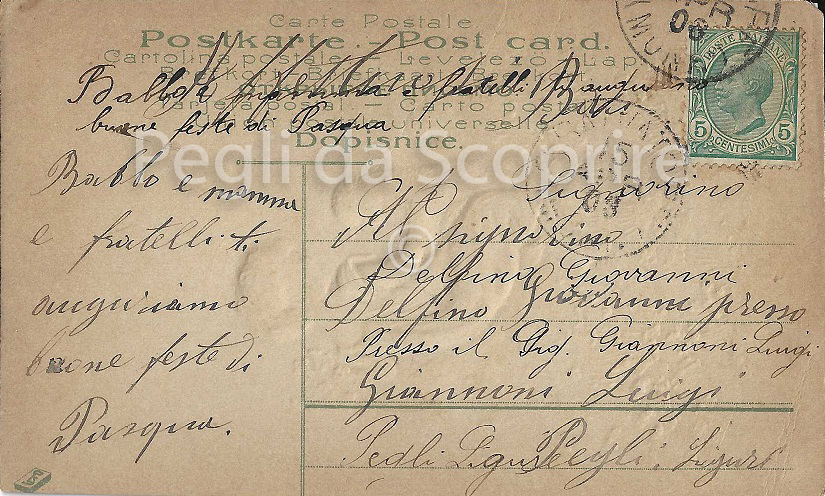 Carte Postale
Postkarte. - Post card.
Cartolina postale - Levelező-Lap.
Babbo e mamma e fratelli ti augurano
buone feste di Pasqua
Carto postale
universelle
Dopisnice.
Pegli da Scoprire
POSTE ITALIANE
5 5
CENTESIMI
06
15
Babbo e mamma
e fratelli ti
auguriamo
buone feste di
Pasqua.
Signorino
Al signorino
Delfino Giovanni
Delfino Giovanni presso
Presso il Sig. Giannoni Luigi
Giannoni Luigi
Pegli Ligure Pegli Liguri